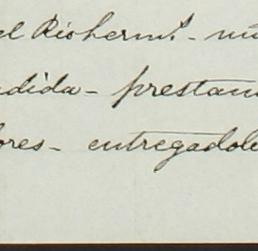 el Riohermº. - mu
ndida - prestam
ores - entregadole